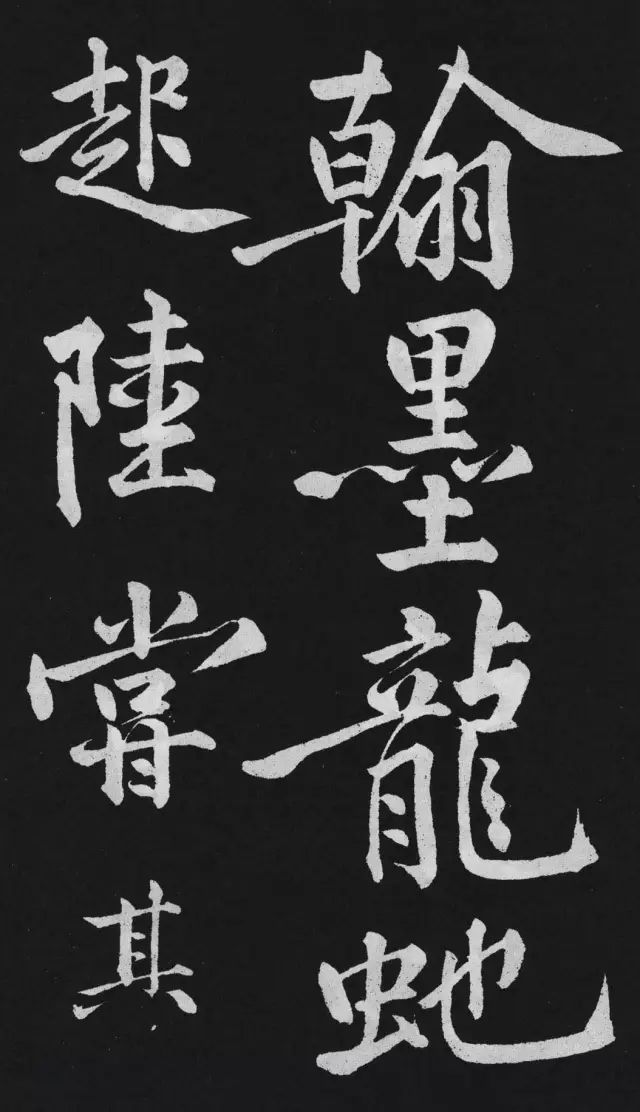 翰墨龍虵
起陸嘗其